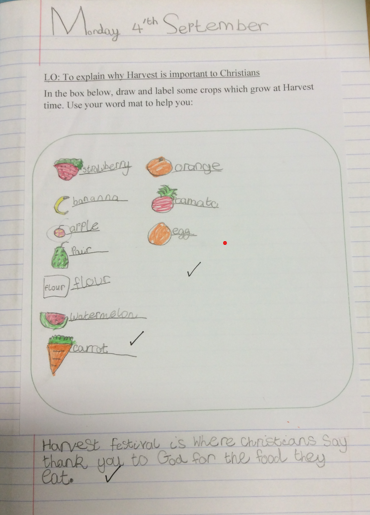 Monday 4th September
LO: To explain why Harvest is important to Christians
In the box below, draw and label some crops which grow at Harvest
time. Use your word mat to help you:
orange
bananna
tomato
apple
egg
FLOUR flour
watermelon
carrot
Harvest festival is where christians say
thank you to God for the food they
eat.